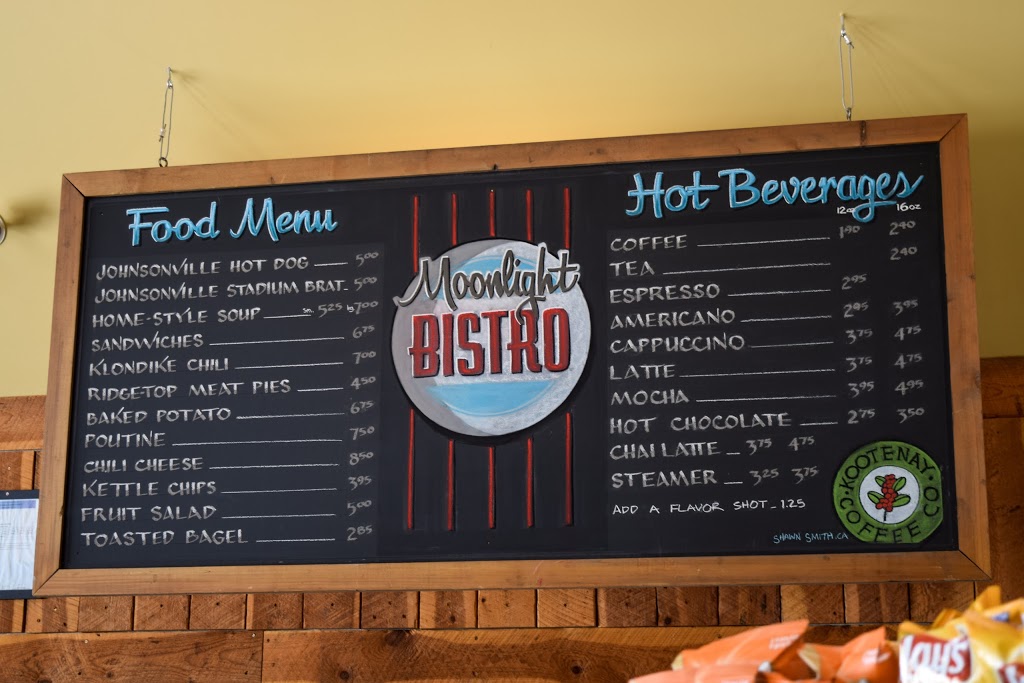 Food Menu
JOHNSONVILLE HOT DOG 5.00
JOHNSONVILLE STADIUM BRAT. 5.00
HOME-STYLE SOUP sm. 5.25 lg 7.00
SANDWICHES 6.75
KLONDIKE CHILI 7.00
RIDGETOP MEAT PIES 4.50
BAKED POTATO 6.75
POUTINE 7.50
CHILI CHEESE 8.50
KETTLE CHIPS 3.95
FRUIT SALAD 5.00
TOASTED BAGEL 2.85
Moonlight
BISTRO
Hot Beverages
12oz 16oz
COFFEE 1.90 2.40
TEA 2.40
ESPRESSO 2.95
AMERICANO 2.95 3.95
CAPPUCCINO 3.75 4.75
LATTE 3.75 4.75
MOCHA 3.95 4.95
HOT CHOCOLATE 2.75 3.50
CHAI LATTE 3.75 4.75
STEAMER 3.25 3.75
ADD A FLAVOR SHOT - 1.25
SHAWN SMITH.CA
KOOTENAY
COFFEE CO
Lay's